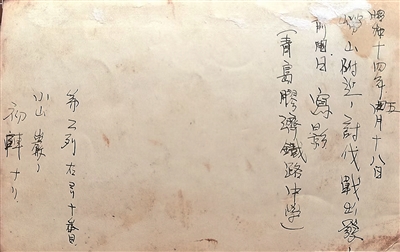 昭和十四年四月十八日
五
山附近ノ討伐戦出発
前日 写影
(青島膠濟鐵路中学)
第二列右ヨリ十番目
小山
ナリ